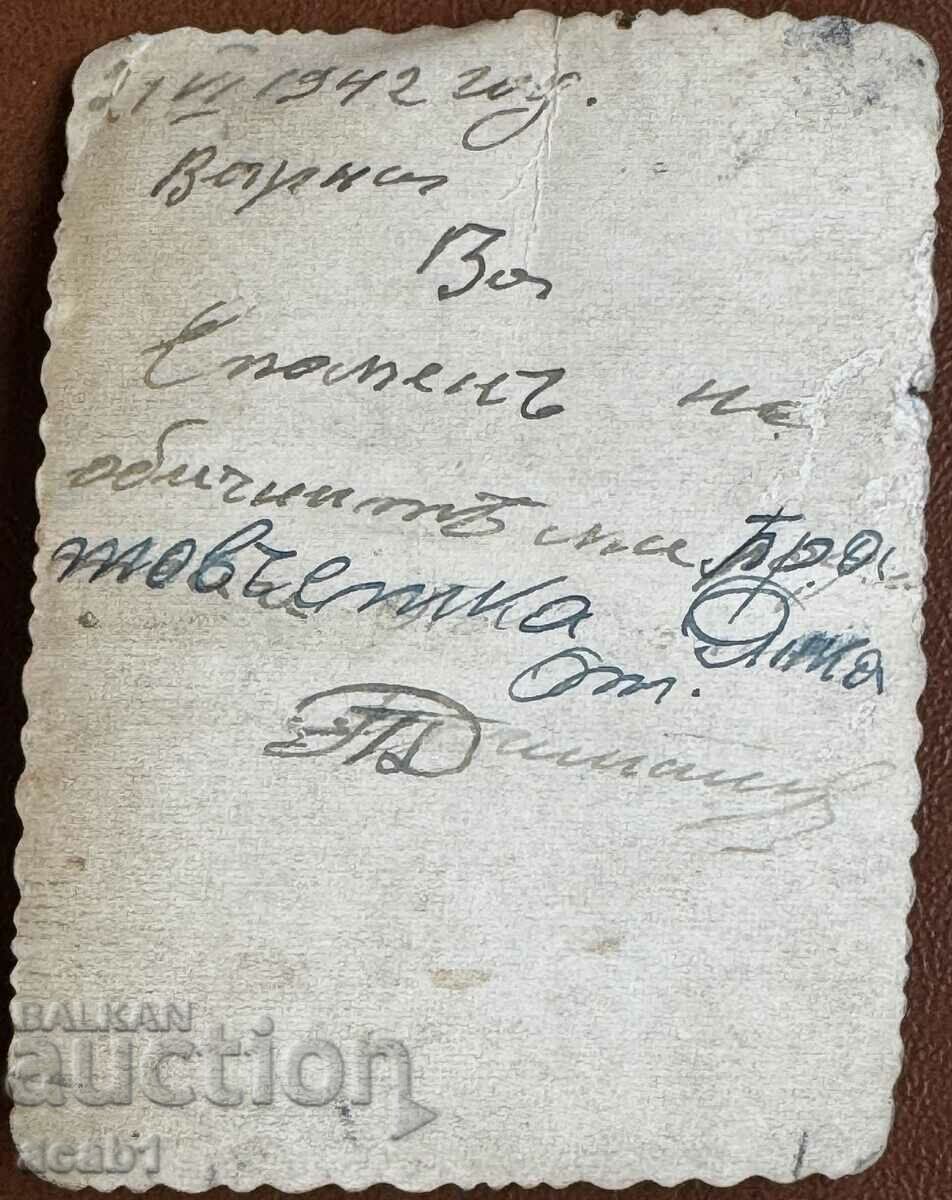 1 VI 1942 год.
Варна
За
Споменъ на
обичнитѣ ми бра
товчетка
от.
BALKAN
auction
acab1